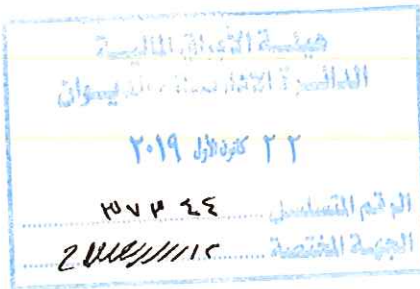 هيئة الأوراق المالية
الدائرة الادارية / الديوان
٢٢ كانون الأول ٢٠١٩
الرقم المتسلسل ٣٧٣٤٤
الجهة المختصة